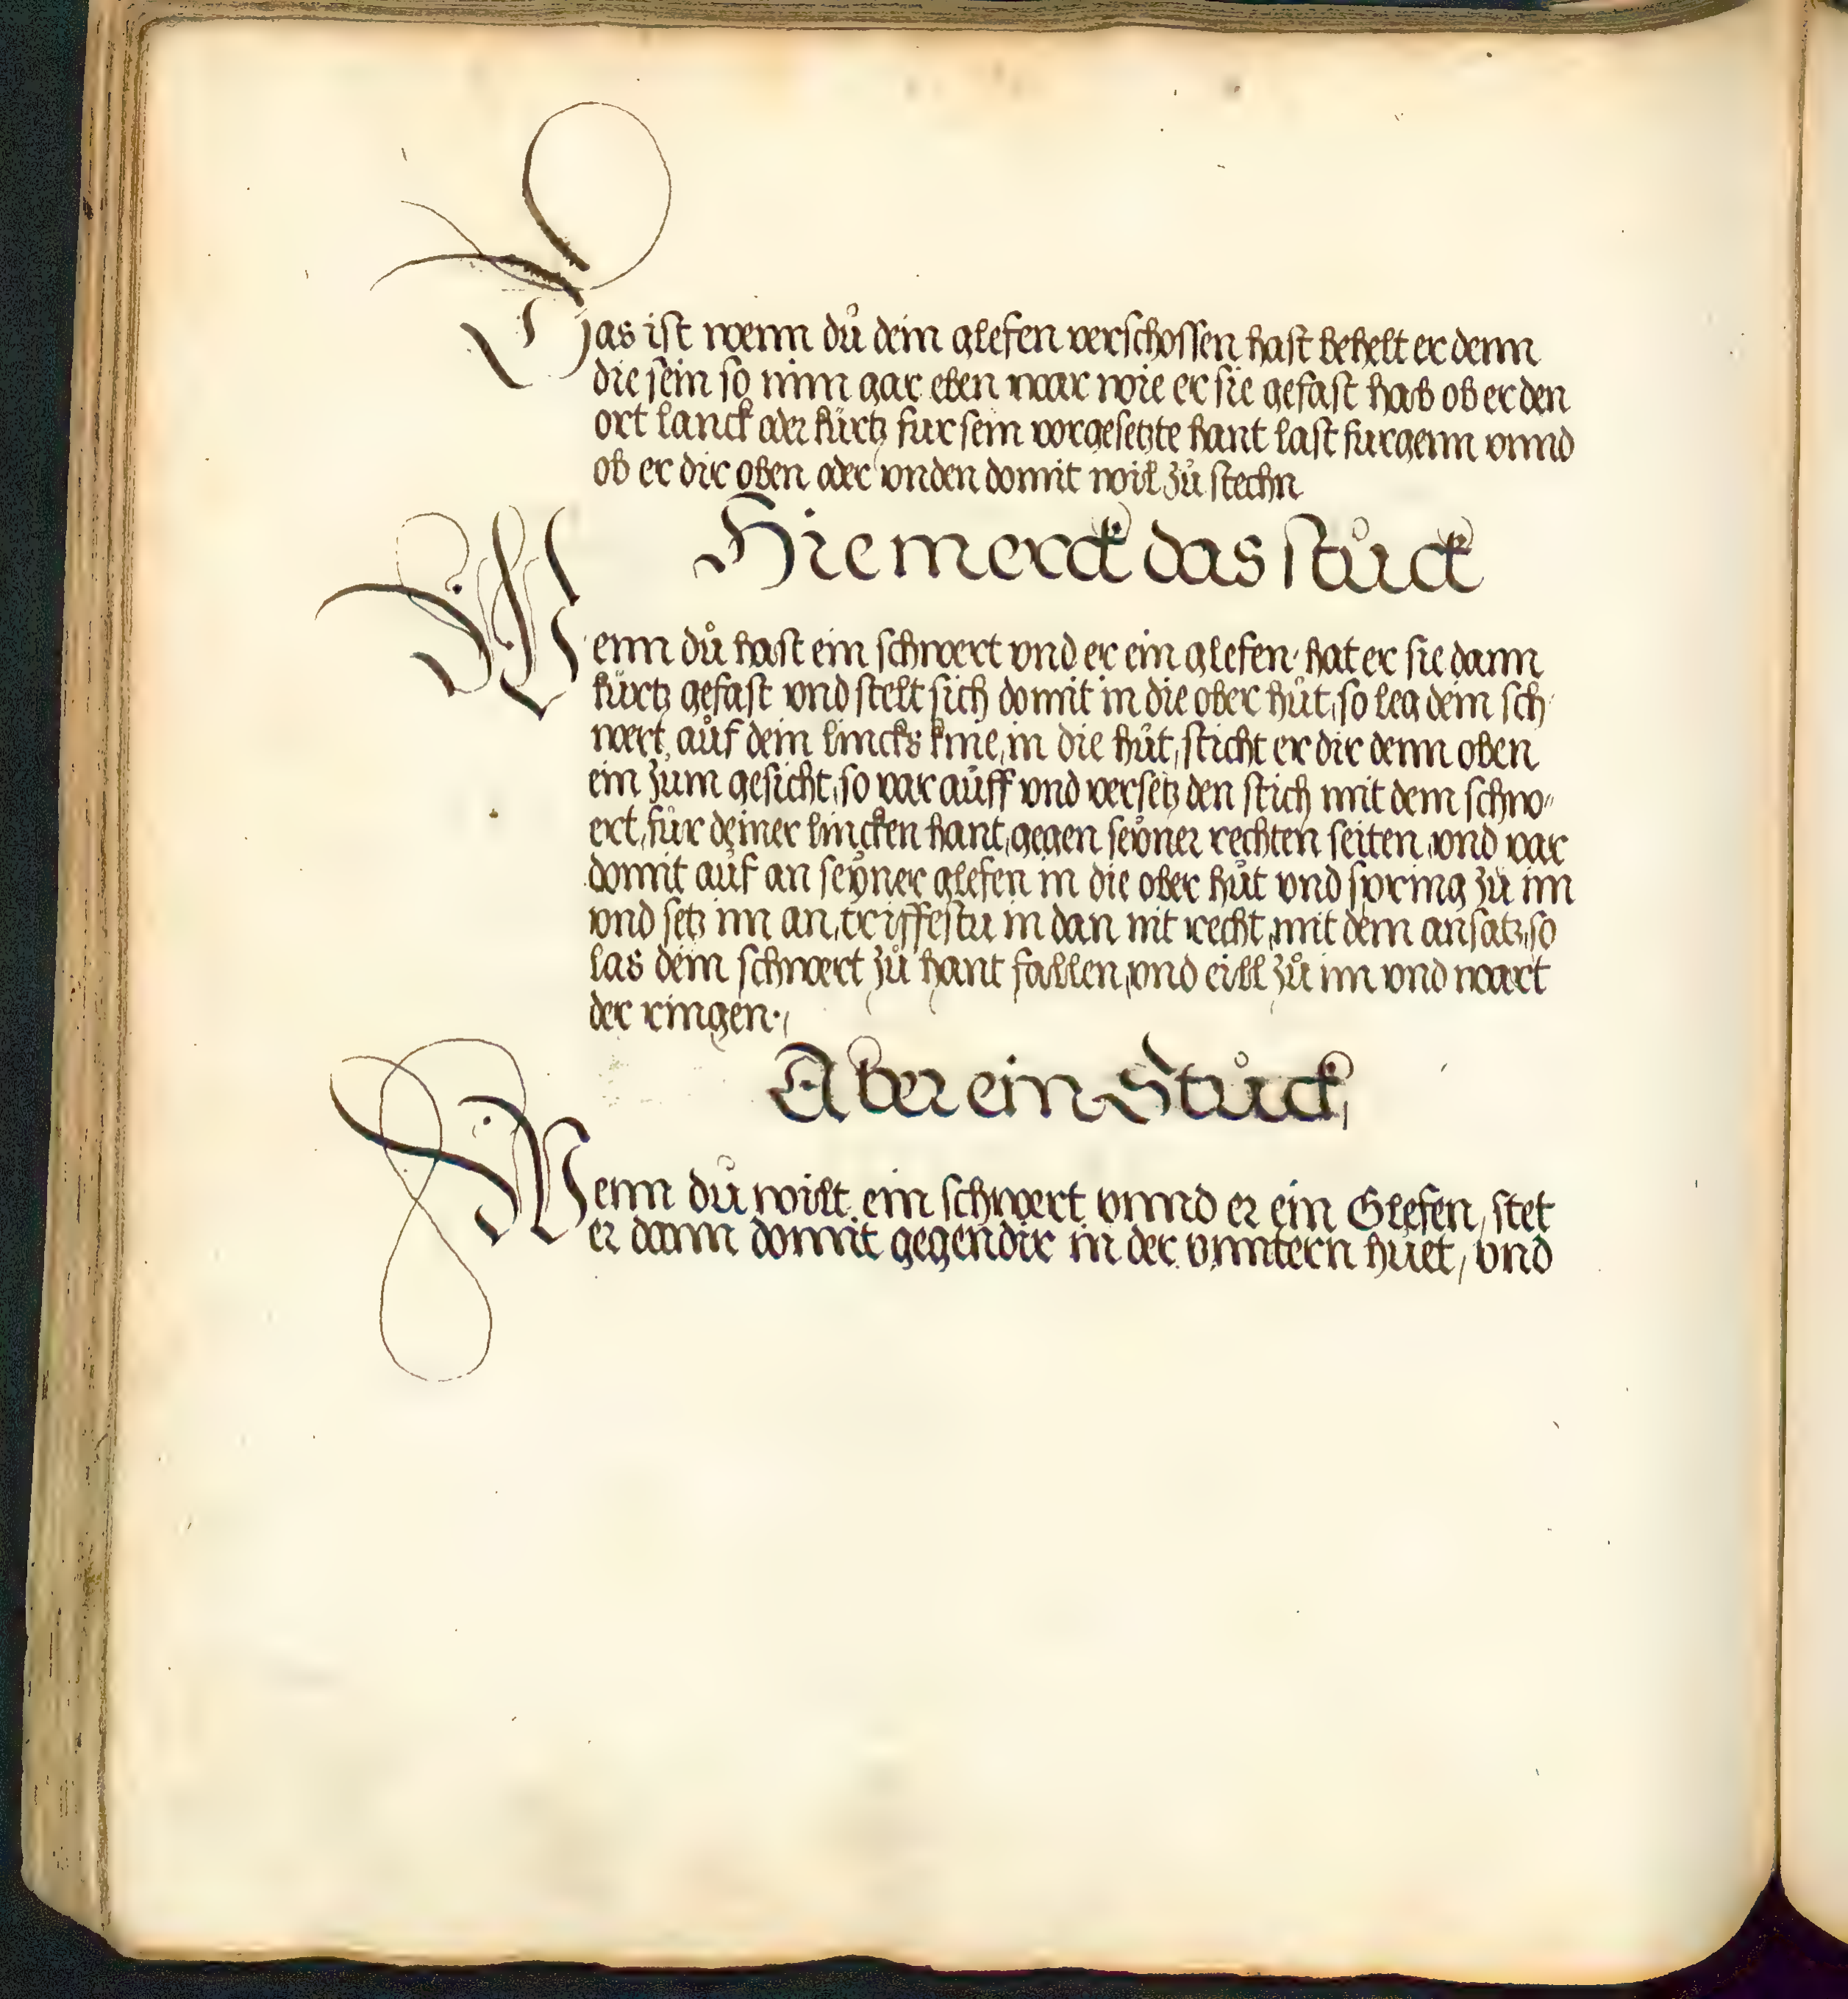 Das ist wenn dů dein glefen verschossen hast behelt er denn
die sein so nim gar eben war wie er sie gefast hab ob er den
ort lanck oder kůrtz fur sein vorgesetzte hant last furgenn vnnd
ob er dir oben oder vnden domit wil zů stechn
Hie merck das stůck
Wenn dů hast ein schwert vnd er ein glefen· hat er sie dann
kůrtz gefast vnd stelt sich domit in die ober hůt, so leg dein sch
wert auf dein lincks knie, in die hůt, sticht er dir denn oben
ein zům gesicht, so var aůff vnd versetz den stich mit dem schw-
ert, fůr deiner lincken hant, gegen seyner rechten seiten, vnd var
domit aůf an seyner glefen in die ober hůt vnd spring zů im
vnd setz im an, triffestu in dan nit recht, mit dem ansatz, so
las dein schwert zů hant fallen, vnd eill zů im vnd wart
der ringen·,
Aber ein Stůck,
Wenn dů wilt ein schwert vnnd er ein Glefen, stet
er dann domit gegen dir in der vnntern hůet, vnd